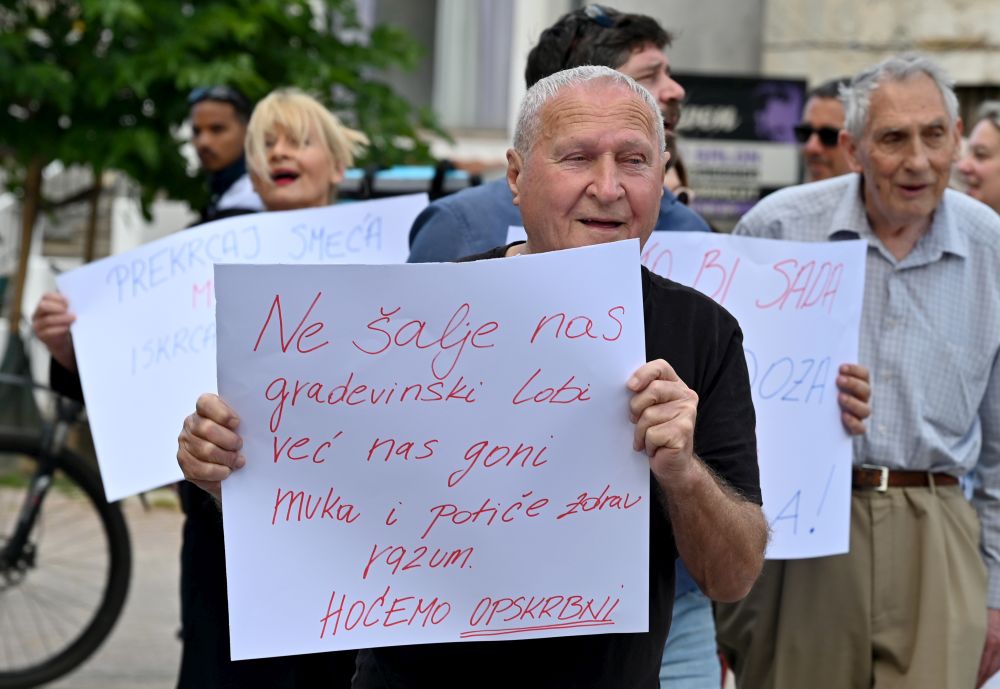 PREKRCAJ SMEĆA
ISKRCA
Ne šalje nas
građevinski lobi
već nas goni
muka i potiče zdrav
razum.
HOĆEMO OPSKRBNI
O BI SADA
DOZA
A!